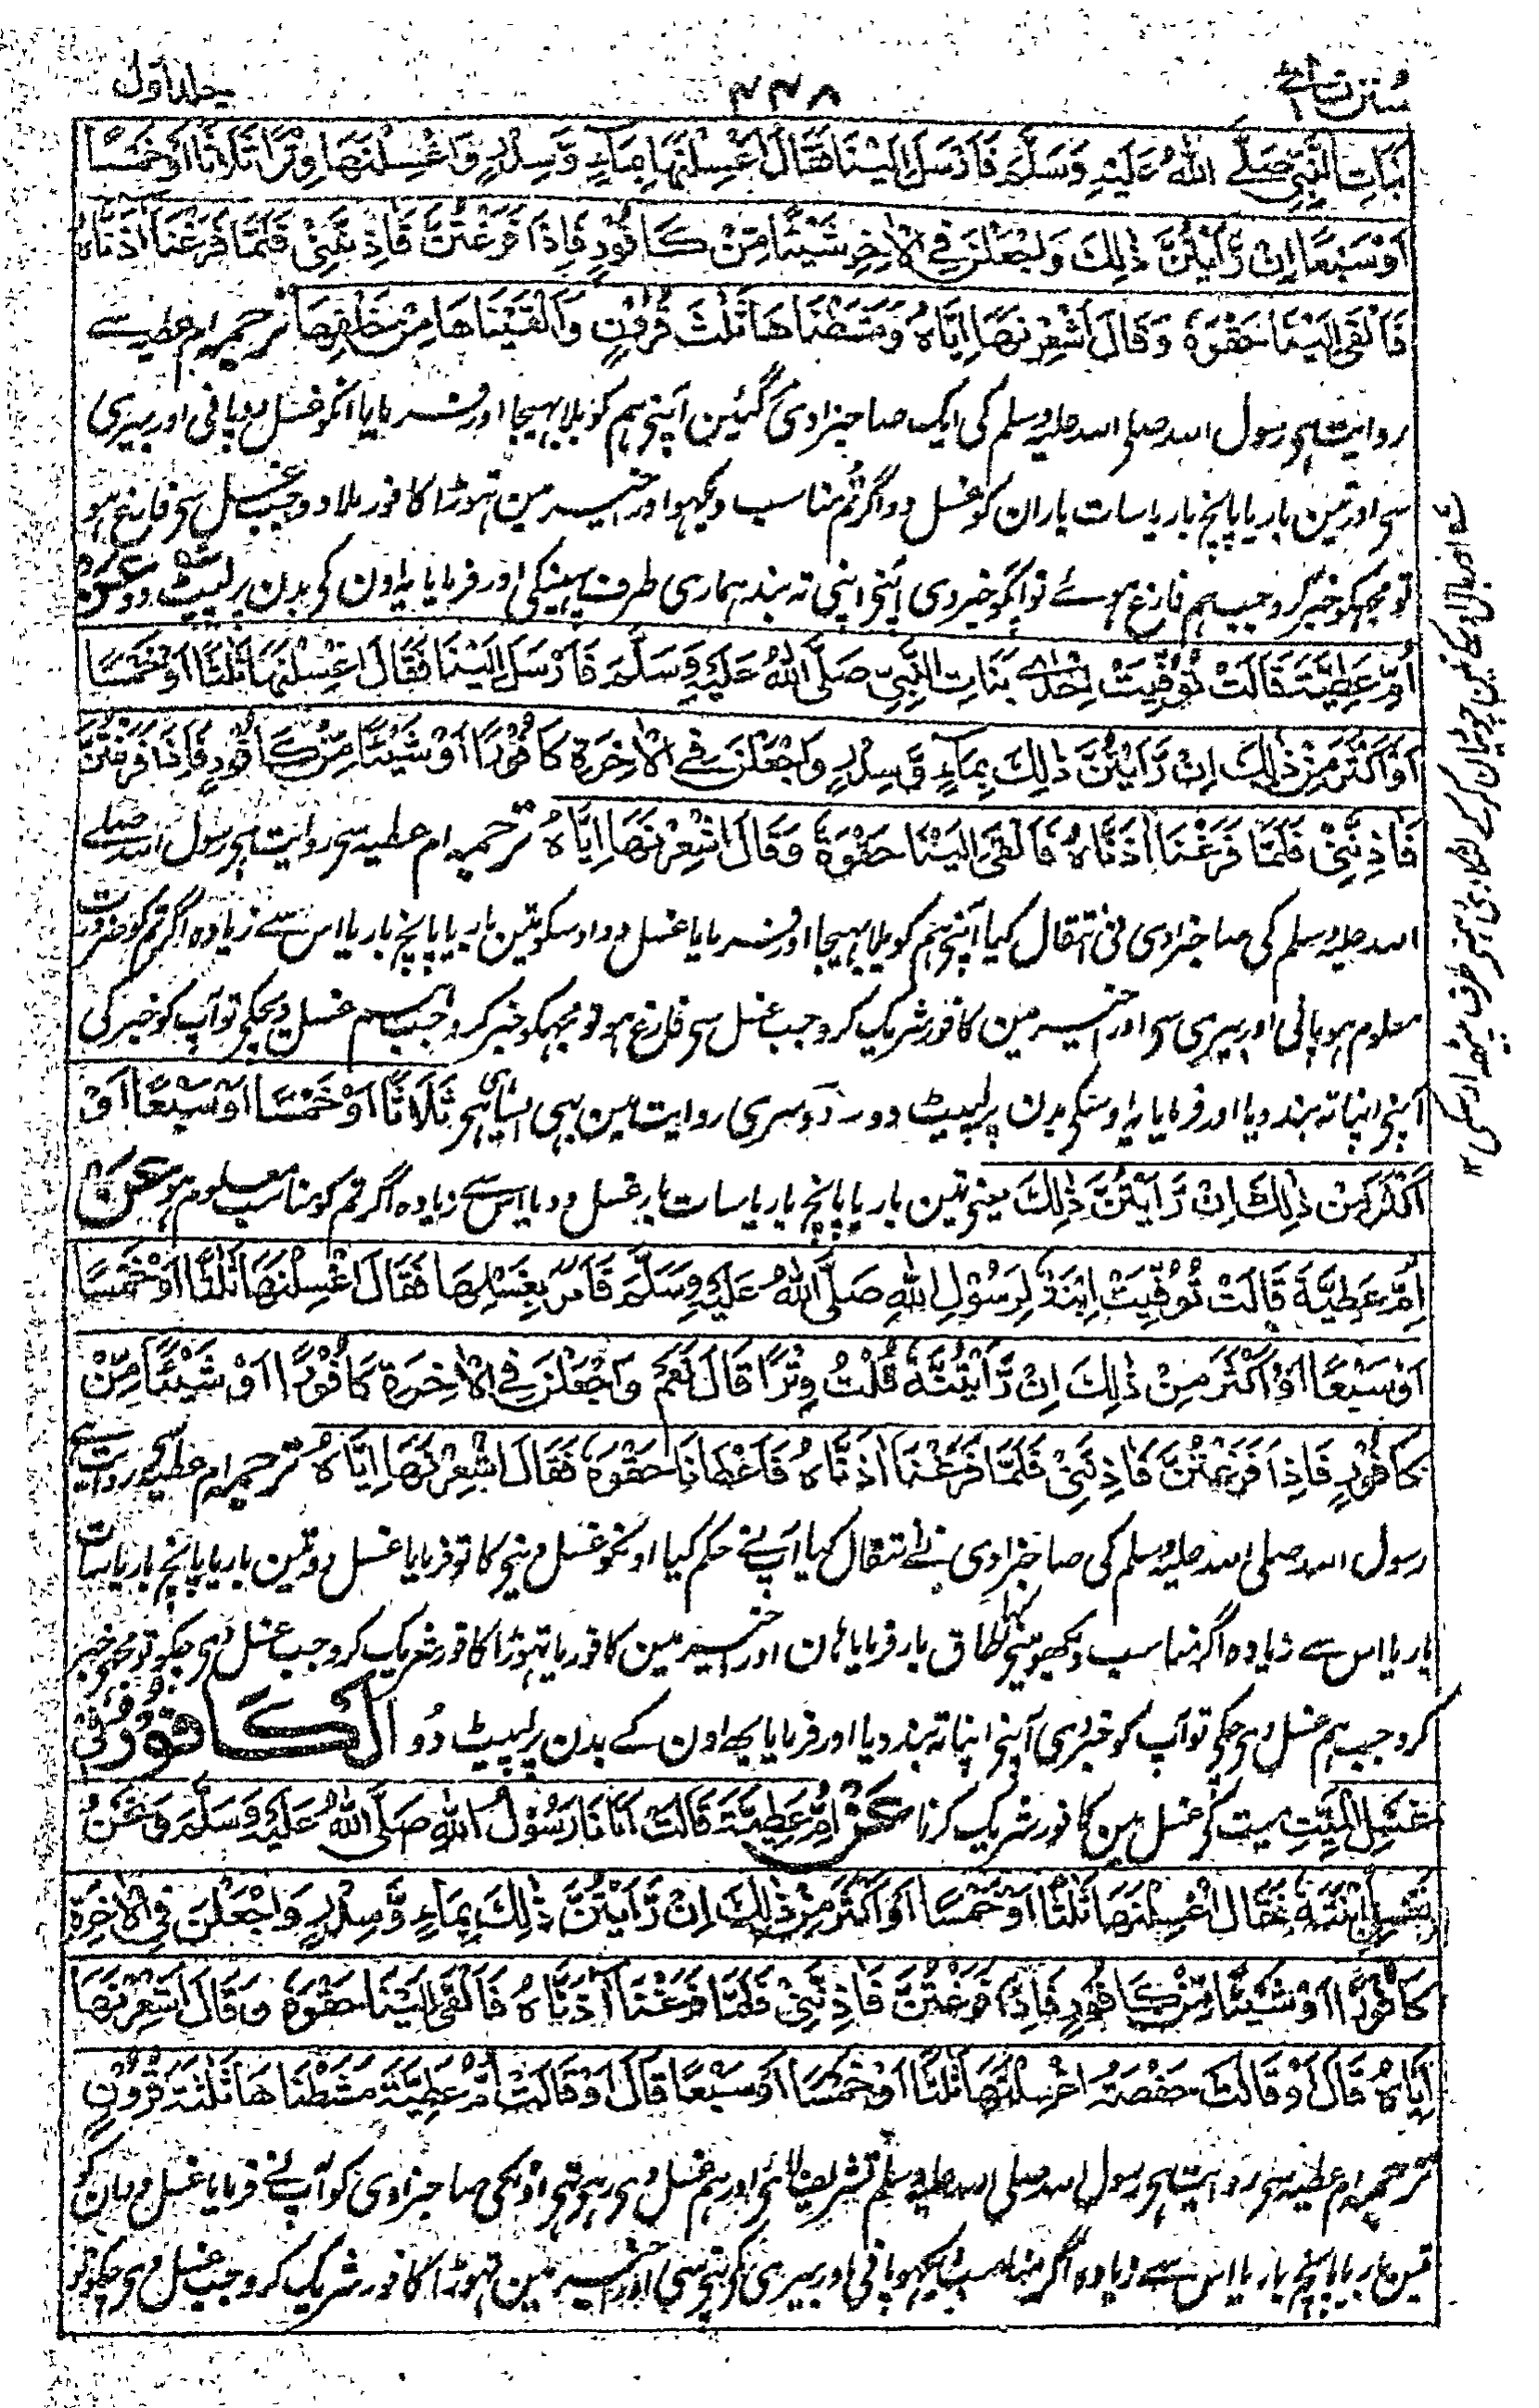 سنن نسائے ۴۴۸ جلد اول
بَنَاتِ النَّبِيِّ صَلَّے اللهُ عَلَيْهِ وَسَلَّمَ فَاَرْسَلَ اِلَيْنَا فَقَالَ اغْسِلْنَهَا بِمَآءٍ وَّسِدْرٍ وَّاغْسِلْنَهَا وِتْرًا ثَلَاثًا اَوْ خَمْسًا
اَوْ سَبْعًا اِنْ رَّاَيْتُنَّ ذٰلِكَ وَاجْعَلْنَ فِي الْاٰخِرِ شَيْئًا مِّنْ كَافُوْرٍ فَاِذَا فَرَغْتُنَّ فَاٰذِنَّنِيْ فَلَمَّا فَرَغْنَا اٰذَنَّاهُ
فَاَلْقٰى اِلَيْنَا حَقْوَهٗ وَقَالَ اَشْعِرْنَهَا اِيَّاهُ وَمَشَطْنَاهَا ثَلٰثَ قُرُوْنٍ وَاَلْقَيْنَاهَا مِنْ خَلْفِهَا ترجمہ ام عطیہ سے
روایت ہے رسول اللہ صلی اللہ علیہ وسلم کی ایک صاحبزادی مر گئین آپنے ہم کو بلا بہیجا اور فرمایا انکو غسل دو پانی اور بیری
سے اور تین بار یا پانچ بار یا سات بار ان کو غسل دو اگر تم مناسب دیکہو اور اخیر مین تہوڑا کافور ملا دو جب غسل سے فارغ ہو
تو مجہکو خبر کرو جب ہم فارغ ہوئے تو آپکو خبر دی آپنے اپنی تہ بند ہماری طرف پہینکی اور فرمایا یہ اون کی بدن پر لپیٹ دو عَنْ
اُمِّ عَطِيَّةَ قَالَتْ تُوُفِّيَتْ اِحْدٰے بَنَاتِ النَّبِيِّ صَلَّى اللهُ عَلَيْهِ وَسَلَّمَ فَاَرْسَلَ اِلَيْنَا فَقَالَ اغْسِلْنَهَا ثَلٰثًا اَوْ خَمْسًا
اَوْ اَكْثَرَ مِنْ ذٰلِكَ اِنْ رَّاَيْتُنَّ ذٰلِكَ بِمَآءٍ وَّسِدْرٍ وَاجْعَلْنَ فِي الْاٰخِرَةِ كَافُوْرًا اَوْ شَيْئًا مِّنْ كَافُوْرٍ فَاِذَا فَرَغْتُنَّ
فَاٰذِنَّنِيْ فَلَمَّا فَرَغْنَا اٰذَنَّاهُ فَاَلْقٰى اِلَيْنَا حَقْوَهٗ وَقَالَ اَشْعِرْنَهَا اِيَّاهُ ترجمہ ام عطیہ سے روایت ہے رسول اللہ صلے
اللہ علیہ وسلم کی صاحبزادی نے انتقال کیا آپنے ہم کو بلا بہیجا اور فرمایا غسل دو اوسکو تین بار یا پانچ بار یا اس سے زیادہ اگر تم کو ضرورت
معلوم ہو پانی اور بیری سے اور اخیر مین کافور شریک کرو جب غسل سے فارغ ہو تو مجہکو خبر کرو جب ہم غسل دیچکے تو آپ کو خبر کی
آپنے اپنا تہ بند دیا اور فرمایا یہ اوسکی بدن پر لپیٹ دو۔ دوسری روایت مین بہی ایسا ہی ہے ثَلَاثًا اَوْ خَمْسًا اَوْ سَبْعًا اَوْ
اَكْثَرَ مِنْ ذٰلِكَ اِنْ رَّاَيْتُنَّ ذٰلِكَ یعنے تین بار یا پانچ بار یا سات بار غسل دو یا اس سے زیادہ اگر تم کو مناسب معلوم ہو عَنْ
اُمِّ عَطِيَّةَ قَالَتْ تُوُفِّيَتْ اِبْنَةٌ لِرَسُوْلِ اللهِ صَلَّى اللهُ عَلَيْهِ وَسَلَّمَ فَاَمَرَ بِغَسْلِهَا فَقَالَ اغْسِلْنَهَا ثَلٰثًا اَوْ خَمْسًا
اَوْ سَبْعًا اَوْ اَكْثَرَ مِنْ ذٰلِكَ اِنْ رَّاَيْتُنَّهٗ قُلْتُ وِتْرًا قَالَ نَعَمْ وَاجْعَلْنَ فِي الْاٰخِرَةِ كَافُوْرًا اَوْ شَيْئًا مِّنْ
كَافُوْرٍ فَاِذَا فَرَغْتُنَّ فَاٰذِنَّنِيْ فَلَمَّا فَرَغْنَا اٰذَنَّاهُ فَاَعْطَانَا حَقْوَهٗ فَقَالَ اَشْعِرْنَهَا اِيَّاهُ ترجمہ ام عطیہ سے روایت ہے
رسول اللہ صلی اللہ علیہ وسلم کی صاحبزادی نے انتقال کیا آپ نے حکم کیا اونکو غسل دینے کا تو فرمایا غسل دو تین بار یا پانچ بار یا سات
بار یا اس سے زیادہ اگر مناسب دیکھو مینے کہا طاق بار فرمایا ہان اور اخیر مین کافور یا تہوڑا کافور شریک کرو جب غسل دے چکو تو مجہے خبر
کرو جب ہم غسل دے چکے تو آپ کو خبر دی آپنے اپنا تہ بند دیا اور فرمایا یہ اون کے بدن پر لپیٹ دو الْكَافُوْرُ فِيْ
غُسْلِ الْمَيِّتِ میت کے غسل مین کافور شریک کرنا عَنْ اُمِّ عَطِيَّةَ قَالَتْ اَتَانَا رَسُوْلُ اللهِ صَلَّى اللهُ عَلَيْهِ وَسَلَّمَ وَنَحْنُ
نَغْسِلُ ابْنَتَهٗ فَقَالَ اغْسِلْنَهَا ثَلٰثًا اَوْ خَمْسًا اَوْ اَكْثَرَ مِنْ ذٰلِكَ اِنْ رَّاَيْتُنَّ ذٰلِكَ بِمَآءٍ وَّسِدْرٍ وَاجْعَلْنَ فِي الْاٰخِرَةِ
كَافُوْرًا اَوْ شَيْئًا مِّنْ كَافُوْرٍ فَاِذَا فَرَغْتُنَّ فَاٰذِنَّنِيْ فَلَمَّا فَرَغْنَا اٰذَنَّاهُ فَاَلْقٰى اِلَيْنَا حَقْوَهٗ وَقَالَ اَشْعِرْنَهَا
اِيَّاهُ قَالَ وَقَالَتْ حَفْصَةُ اغْسِلْنَهَا ثَلٰثًا اَوْ خَمْسًا اَوْ سَبْعًا قَالَ وَقَالَتْ اُمُّ عَطِيَّةَ مَشَطْنَاهَا ثَلٰثَةَ قُرُوْنٍ
ترجمہ ام عطیہ سے روایت ہے رسول اللہ صلی اللہ علیہ وسلم تشریف لائے اور ہم غسل دے رہے تہے اونکی صاحبزادی کو آپ نے فرمایا غسل دو ان کو
تین بار یا پانچ بار یا اس سے زیادہ اگر مناسب دیکہو پانی اور بیری کے پتے سے اور اخیر مین تہوڑا کافور شریک کرو جب غسل دے چکو تو